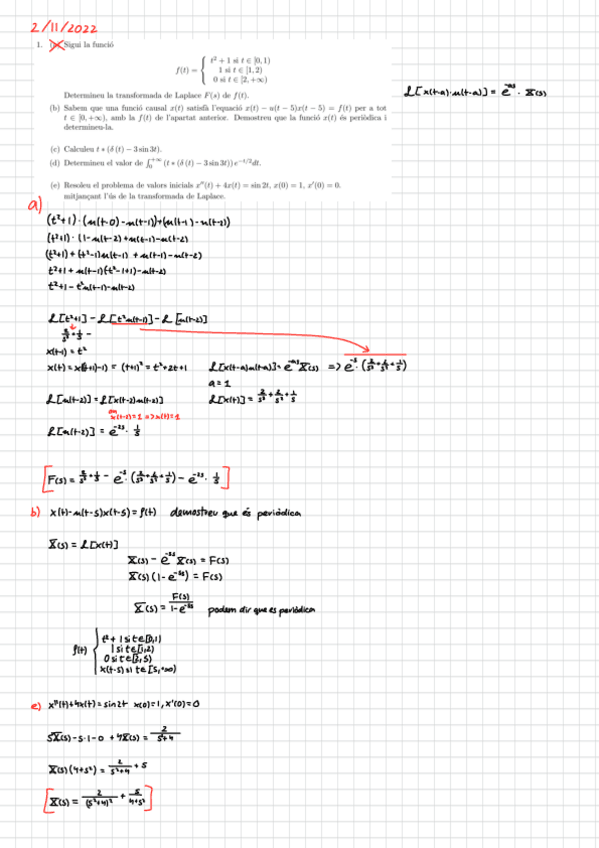 2/11/2022
1. (a) Sigui la funció
f(t) = { t² + 1 si t ∈ [0, 1)
1 si t ∈ [1, 2)
0 si t ∈ [2, +∞)
Determineu la transformada de Laplace F(s) de f(t).
(b) Sabem que una funció causal x(t) satisfà l'equació x(t) − u(t − 5)x(t − 5) = f(t) per a tot
t ∈ [0, +∞), amb la f(t) de l'apartat anterior. Demostreu que la funció x(t) és periòdica i
determineu-la.
(c) Calculeu t * (δ(t) − 3 sin 3t).
(d) Determineu el valor de ∫₀^{+∞} (t * (δ(t) − 3 sin 3t)) e^{−t/2} dt.
(e) Resoleu el problema de valors inicials x''(t) + 4x(t) = sin 2t, x(0) = 1, x'(0) = 0.
mitjançant l'ús de la transformada de Laplace.
ℒ[x(t-a)·u(t-a)] = e^{-as} · X(s)
a)
(t²+1)·(u(t-0)-u(t-1))+(u(t-1)-u(t-2))
(t²+1)·(1-u(t-2)+u(t-1)-u(t-2)
(t²+1)+(t²-1)u(t-1) + u(t-1)-u(t-2)
t²+1+u(t-1)(-t²-1+1)-u(t-2)
t²+1-t²u(t-1)-u(t-2)
ℒ[t²+1] - ℒ[t²u(t-1)] - ℒ[u(t-2)]
2/s³ + 1/s -
x(t-1) = t²
x(t) = x((t+1)-1) = (t+1)² = t²+2t+1 ℒ[x(t-a)u(t-a)] = e^{-as}X(s) => e^{-s}·(2/s³+2/s²+1/s)
a=1
ℒ[u(t-2)] = ℒ[x(t-2)u(t-2)] ℒ[x(t)] = 2/s³+2/s²+1/s
on x(t-2)=1 => x(t)=1
ℒ[u(t-2)] = e^{-2s} · 1/s
[F(s) = 2/s³ + 1/s - e^{-s}·(2/s³+2/s²+1/s) - e^{-2s} · 1/s]
b) x(t)-u(t-5)x(t-5) = f(t) demostreu que és periòdica
X(s) = ℒ[x(t)]
X(s) - e^{-5s} X(s) = F(s)
X(s)(1-e^{-5s}) = F(s)
X(s) = F(s)/(1-e^{-5s}) podem dir que es periòdica
f(t) { t²+1 si t∈[0,1)
1 si t∈[1,2)
0 si t∈[2,5)
x(t-5) si t∈[5,+∞)
e) x''(t)+4x(t) = sin2t x(0)=1, x'(0)=0
s²X(s)-s·1-0 +4X(s) = 2/(s²+4)
X(s)(4+s²) = 2/(s²+4) + s
[X(s) = 2/(s²+4)² + s/(4+s²)]